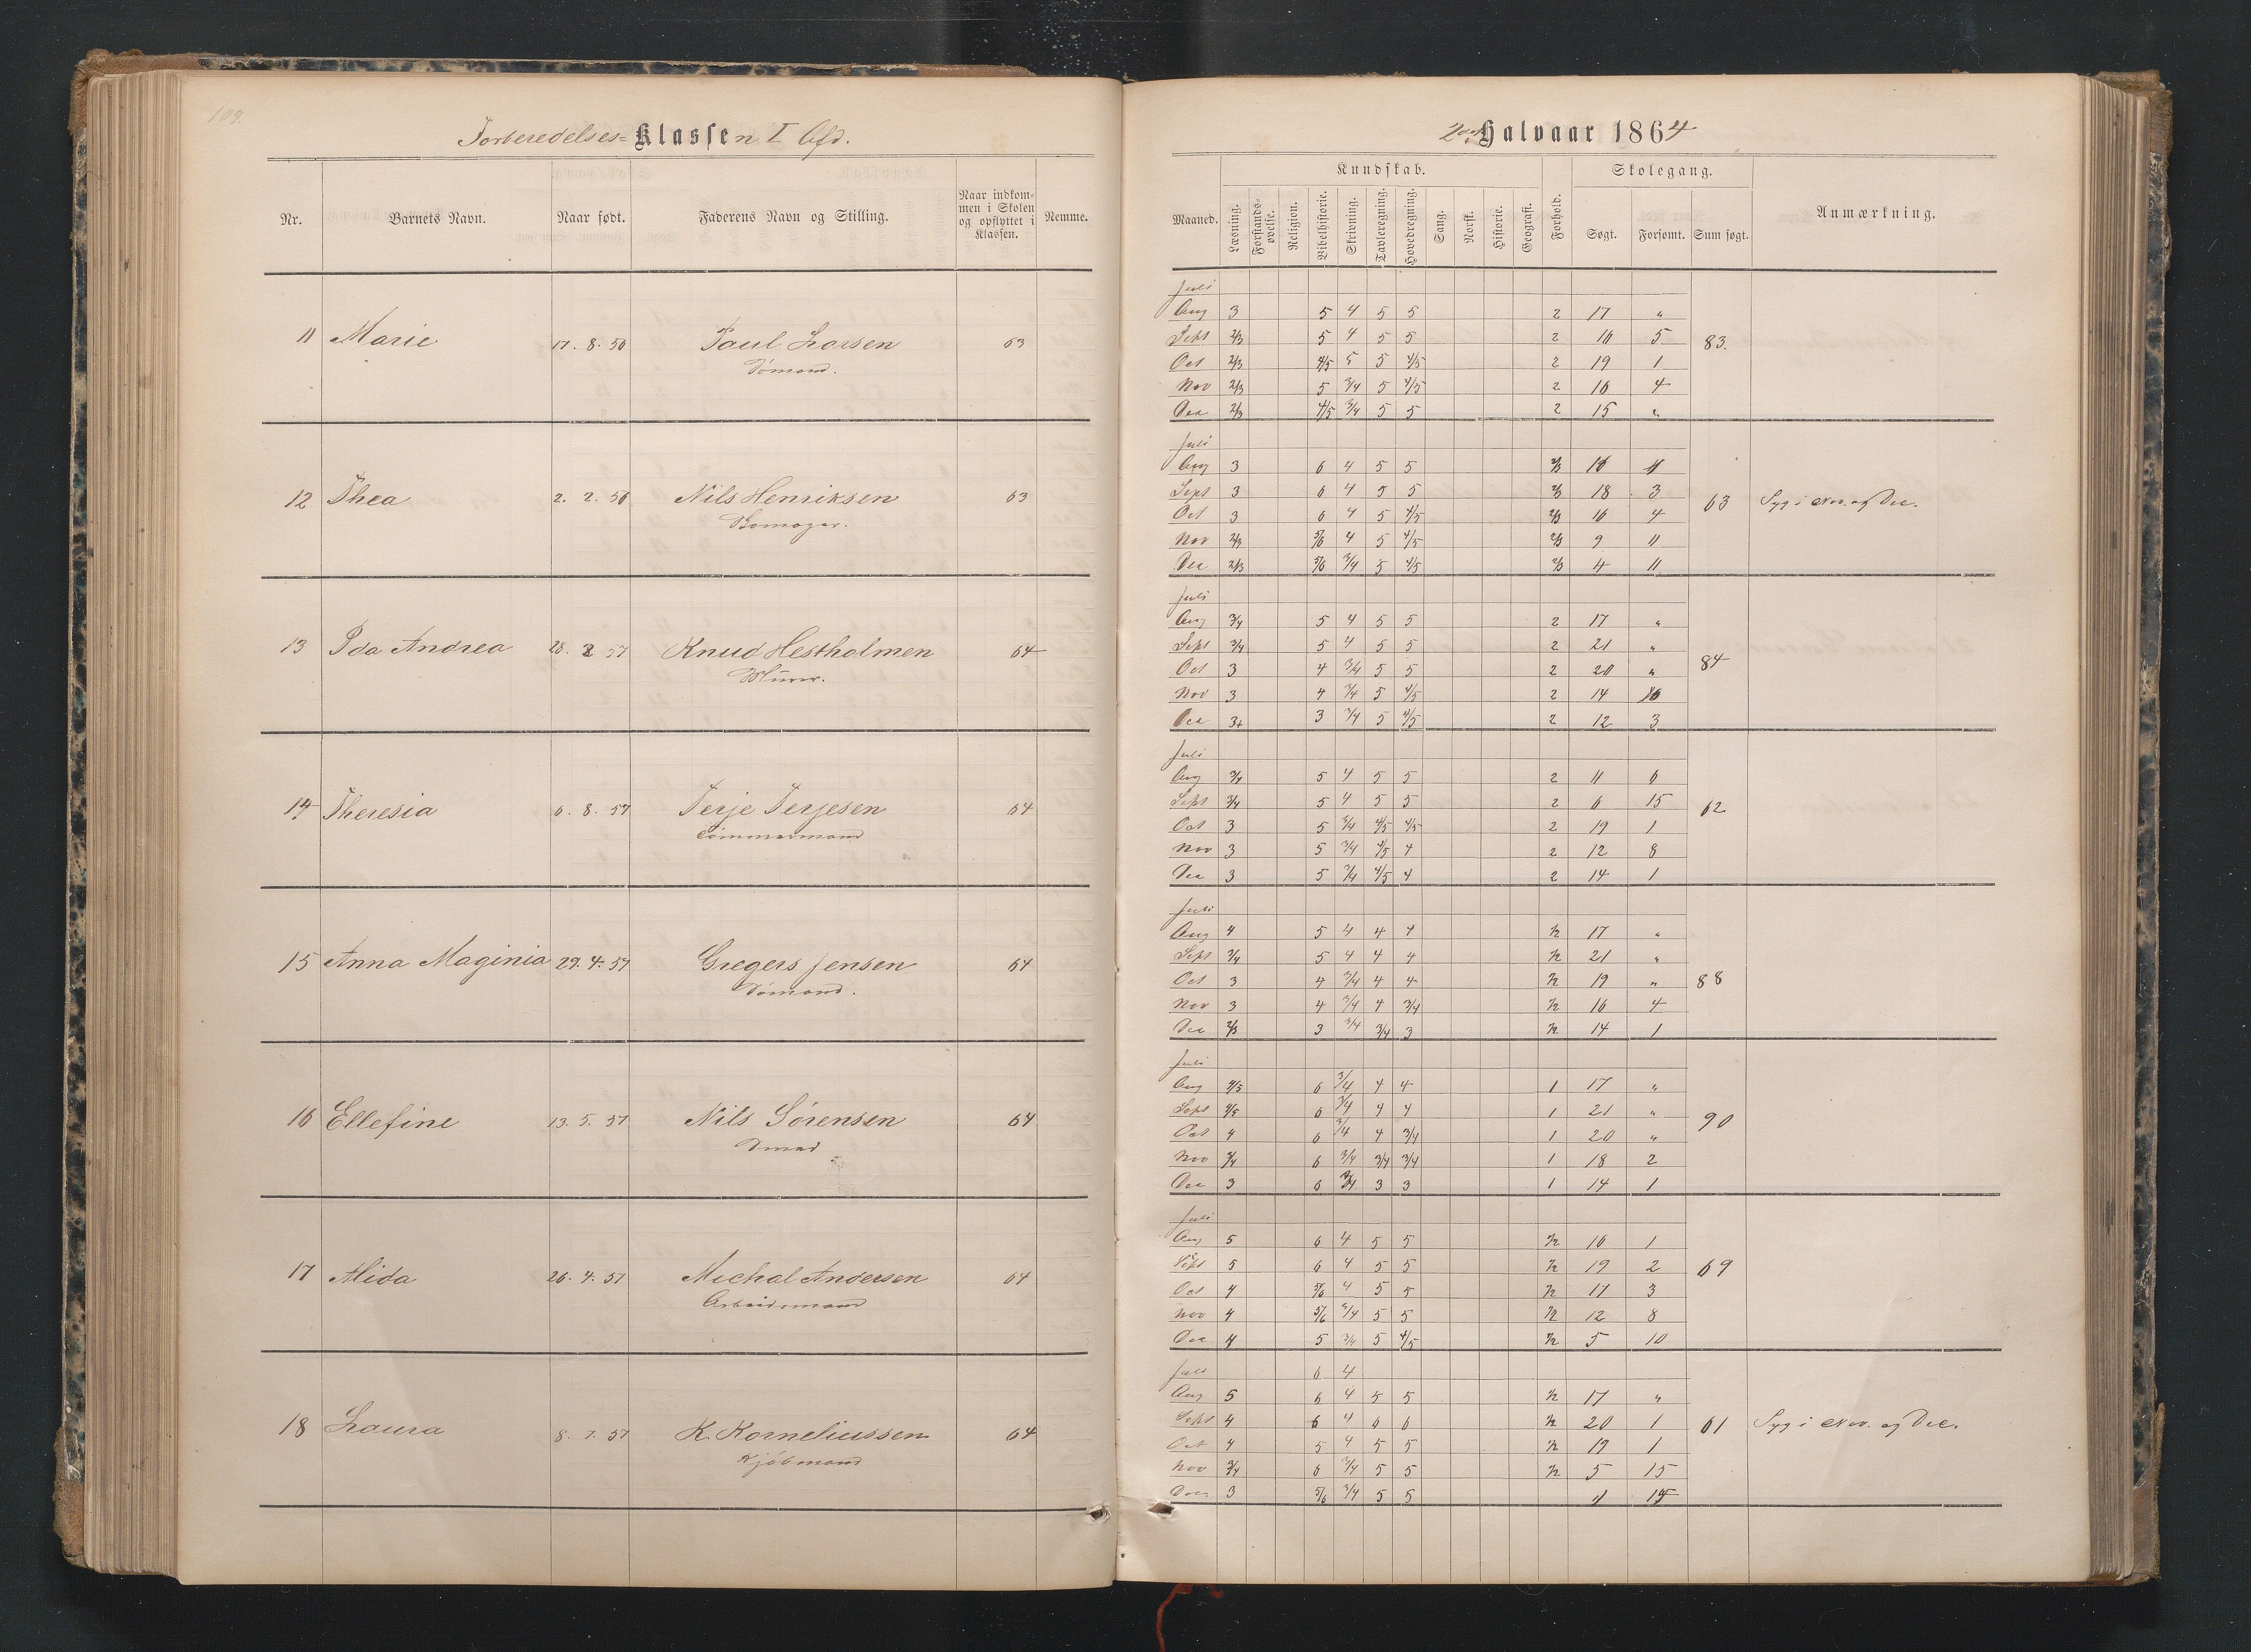 109.
Forberedelses=Klassen I Afd.
Nr. Barnets Navn. Naar født. Faderens Navn og Stilling. Naar indkommen i Skolen og opflyttet i Klassen. Nemme.
11 Marie 17. 8. 56 Paul Larsen 63
Sømand.
12 Thea 2. 2. 56 Nils Henriksen 63
13 Ida Andrea 28. 2 57 Knud Hestholmen 64
Murer.
14 Theresia 6. 8. 57 Terje Terjesen 64
Tømmermand
15 Anna Maginia 29. 4. 57 Gregers Jensen 64
Sømand.
16 Ellefine 13. 5. 57 Nils Sørensen 64
Smed
17 Alida 26. 4. 57 Michal Andersen 64
Arbeidsmand
18 Laura 8. 7. 57 K. Korneliussen 64
Kjøbmand
2det Halvaar 1864
Kundskab. Skolegang.
Maaned. Læsning. Forstandsøvelse. Religion. Bibelhistorie. Skrivning. Tavleregning. Hovedregning. Sang. Norsk. Historie. Geografi. Forhold. Søgt. Forsømt. Sum søgt. Anmærkning.
Juli
Aug 3 5 4 5 5 2 17 "
Sept 2/3 5 4 5 5 2 16 5 83.
Oct 2/3 4/5 5 5 4/5 2 19 1
Nov 2/3 5 3/4 5 4/5 2 16 4
Dec 2/3 4/5 3/4 5 5 2 15 "
Juli
Aug 3 6 4 5 5 2/3 16
Sept 3 6 4 5 5 2/3 18 3 63 Syg i Nov. og Dec.
Oct 3 6 4 5 4/5 2/3 16 4
Nov 2/3 5/6 4 5 4/5 2/3 9 11
Dec 2/3 5/6 3/4 5 4/5 2/3 4 11
Juli
Aug 3/4 5 4 5 5 2 17 "
Sept 3/4 5 4 5 5 2 21 "
Oct 3 4 3/4 5 5 2 20 " 84
Nov 3 4 3/4 5 4/5 2 14 6
Dec 3+ 3 3/4 5 4/5 2 12 3
Juli
Aug 3/4 5 4 5 5 2 11 6
Sept 3/4 5 4 5 5 2 6 15 62
Oct 3 5 3/4 4/5 4/5 2 19 1
Nov 3 5 3/4 4/5 4 2 12 8
Dec 3 5 3/4 4/5 4 2 14 1
Juli
Aug 4 5 4 4 4 1/2 17 "
Sept 3/4 5 4 4 4 1/2 21 "
Oct 3 4 3/4 4 4 1/2 19 " 88
Nov 3 4 3/4 4 3/4 1/2 16 4
Dec 2/3 3 3/4 3/4 3 1/2 14 1
Juli
Aug 4/5 6 3/4 4 4 1 17 "
Sept 4/5 6 3/4 4 4 1 21 "
Oct 4 6 3/4 4 3/4 1 20 " 90
Nov 3/4 6 3/4 3/4 3/4 1 18 2
Dec 3 6 3/4 3 3 1 14 1
Juli
Aug 5 6 4 5 5 1/2 16 1
Sept 5 6 4 5 5 1/2 19 2 69
Oct 4 5/6 4 5 5 1/2 17 3
Nov 4 5/6 3/4 5 5 1/2 12 8
Dec 4 5 3/4 5 4/5 1/2 5 10
Juli 6 4
Aug 5 6 4 5 5 1/2 17 "
Sept 4 6 4 6 6 1/2 20 1 61 Syg i Nov. og Dec.
Oct 4 5 4 5 5 1/2 19 1
Nov 3/4 6 3/4 5 5 1/2 5 15
Dec. 3 5/6 3/4 5 5 15